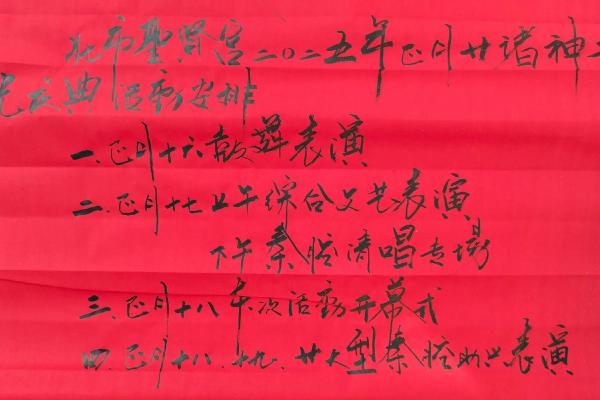 北市聖賢宫二〇二五年正月廿諸神
庆典活動安排
一.正月十六鼓舞表演
二.正月十七上午综合文艺表演
下午秦腔清唱专場
三.正月十八本次活動开幕式
四.正月十八.十九.廿大型秦腔助兴表演